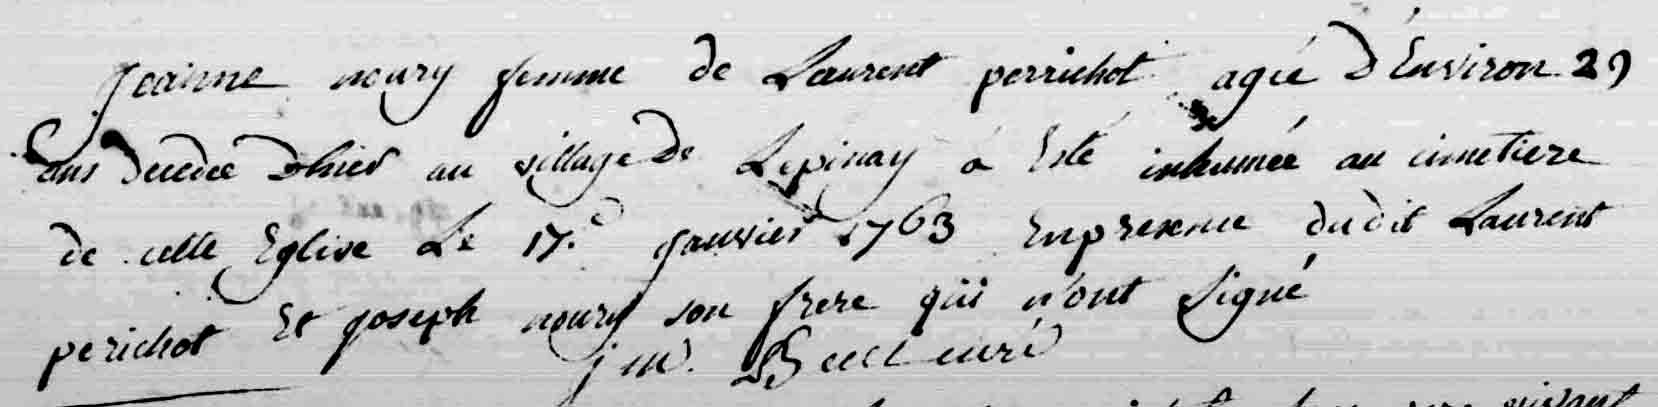 Jeanne noury femme de Laurent perrichot agée d'Environ 29
ans decedée d'hier au village de Lepinay a Esté inhumée au cimetiere
de cette Eglise Le 17.e janvier 1763 En presence dudit Laurent
perichot Et joseph noury son frere qui n'ont signé
j m. curé